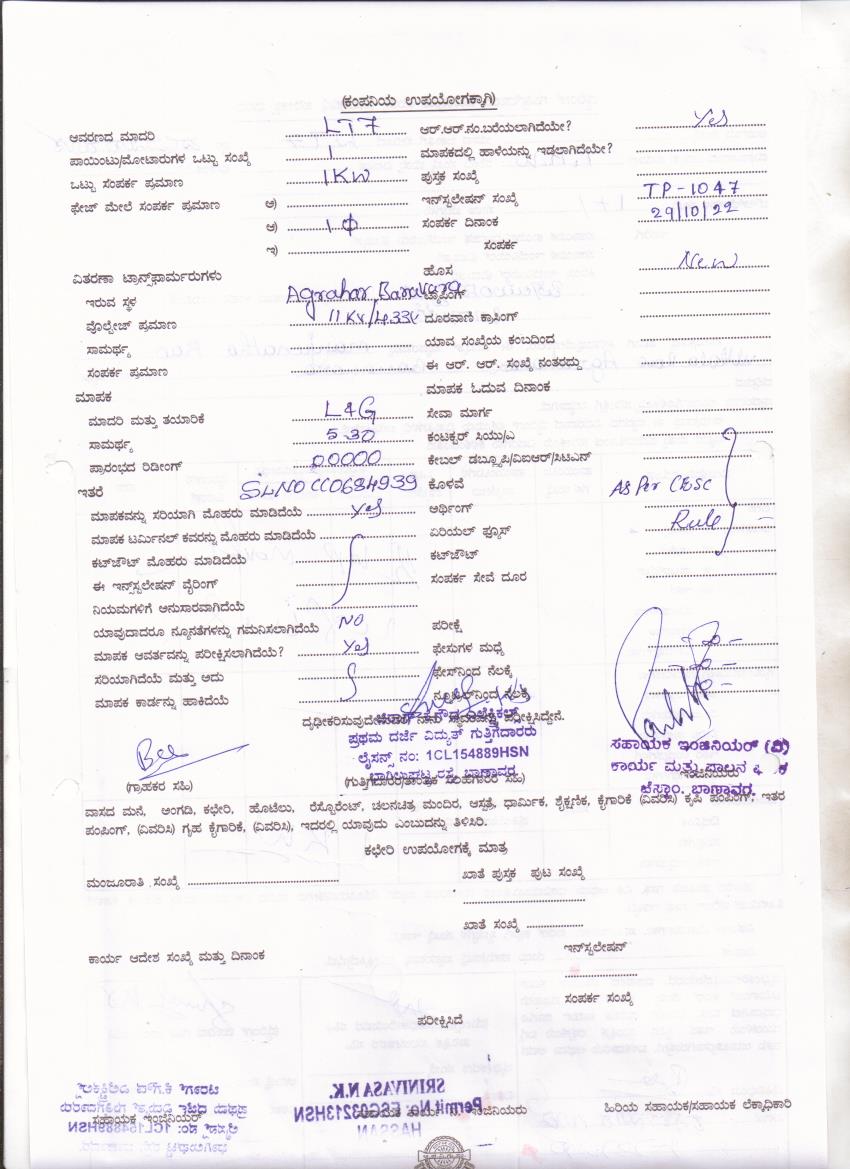 (ಕಂಪನಿಯ ಉಪಯೋಗಕ್ಕಾಗಿ)
ಆವರಣದ ಮಾದರಿ LT7 ಆರ್.ಆರ್.ನಂ.ಬರೆಯಲಾಗಿದೆಯೇ? Yes
ಪಾಯಿಂಟು/ಮೋಟಾರುಗಳ ಒಟ್ಟು ಸಂಖ್ಯೆ 1 ಮಾಪಕದಲ್ಲಿ ಹಾಳೆಯನ್ನು ಇಡಲಾಗಿದೆಯೇ?
ಒಟ್ಟು ಸಂಪರ್ಕ ಪ್ರಮಾಣ 1KW ಪುಸ್ತಕ ಸಂಖ್ಯೆ
ಫೇಜ್ ಮೇಲೆ ಸಂಪರ್ಕ ಪ್ರಮಾಣ ಅ) ಇನ್‌ಸ್ಟಲೇಷನ್ ಸಂಖ್ಯೆ TP-1047
ಆ) 1Φ ಸಂಪರ್ಕ ದಿನಾಂಕ 29/10/22
ಇ) ಸಂಪರ್ಕ
ವಿತರಣಾ ಟ್ರಾನ್ಸ್‌ಫಾರ್ಮರುಗಳು ಹೊಸ New
ಇರುವ ಸ್ಥಳ Agrahar Banavara ಟ್ಯಾಪಿಂಗ್
ವೊಲ್ಟೇಜ್ ಪ್ರಮಾಣ 11KV/433V ದೂರವಾಣಿ ಕ್ರಾಸಿಂಗ್
ಸಾಮರ್ಥ್ಯ ಯಾವ ಸಂಖ್ಯೆಯ ಕಂಬದಿಂದ
ಸಂಪರ್ಕ ಪ್ರಮಾಣ ಈ ಆರ್. ಆರ್. ಸಂಖ್ಯೆ ನಂತರದ್ದು
ಮಾಪಕ ಮಾಪಕ ಓದುವ ದಿನಾಂಕ
ಮಾದರಿ ಮತ್ತು ತಯಾರಿಕೆ L&G ಸೇವಾ ಮಾರ್ಗ
ಸಾಮರ್ಥ್ಯ 5-30 ಕಂಟಕ್ಟರ್ ಸಿಯು/ಎ
ಪ್ರಾರಂಭದ ರಿಡೀಂಗ್ 00000 ಕೇಬಲ್ ಡಬ್ಲ್ಯೂಪಿ/ವಿಐಆರ್/ಸಿಟಿಎನ್
ಇತರೆ SLNO CC0684939 ಕೊಳವೆ As Per CESC
ಮಾಪಕವನ್ನು ಸರಿಯಾಗಿ ಮೊಹರು ಮಾಡಿದೆಯೆ Yes ಅರ್ಥಿಂಗ್
ಮಾಪಕ ಟರ್ಮಿನಲ್ ಕವರನ್ನು ಮೊಹರು ಮಾಡಿದೆಯೆ ಏರಿಯಲ್ ಫ್ಯೂಸ್ Rule
ಕಟ್‌ಜೌಟ್ ಮೊಹರು ಮಾಡಿದೆಯೆ ಕಟ್‌ಜೌಟ್
ಈ ಇನ್ಸ್‌ಸ್ಟಲೇಷನ್ ವೈರಿಂಗ್ ಸಂಪರ್ಕ ಸೇವೆ ದೂರ
ನಿಯಮಗಳಿಗೆ ಅನುಸಾರವಾಗಿದೆಯೆ
ಯಾವುದಾದರೂ ನ್ಯೂನತೆಗಳನ್ನು ಗಮನಿಸಲಾಗಿದೆಯೆ NO ಪರೀಕ್ಷೆ
ಮಾಪಕ ಆವರ್ತವನ್ನು ಪರೀಕ್ಷಿಸಲಾಗಿದೆಯೆ? Yes ಫೇಸುಗಳ ಮಧ್ಯೆ
ಸರಿಯಾಗಿದೆಯೆ ಮತ್ತು ಅದು ಫೇಸ್‌ನಿಂದ ನೆಲಕ್ಕೆ
ಮಾಪಕ ಕಾರ್ಡನ್ನು ಹಾಕಿದೆಯೆ ನ್ಯೂಟ್ರಲ್‌ನಿಂದ ನೆಲಕ್ಕೆ
ಪರೀಕ್ಷಿಸಿದ್ದೇನೆ.
ಪ್ರಥಮ ದರ್ಜೆ ವಿದ್ಯುತ್ ಗುತ್ತಿಗೆದಾರರು
ಲೈಸನ್ಸ್ ನಂ: 1CL154889HSN
ಸಹಾಯಕ ಇಂಜಿನಿಯರ್ (ವಿ)
ಕಾರ್ಯ ಮತ್ತು ಪಾಲನ
ಚೆಸ್ಕಾಂ. ಬಾಣಾವರ.
(ಗ್ರಾಹಕರ ಸಹಿ)
ವಾಸದ ಮನೆ, ಅಂಗಡಿ, ಕಛೇರಿ, ಹೊಟೆಲು, ರೆಸ್ಟೊರೆಂಟ್, ಚಲನಚಿತ್ರ ಮಂದಿರ, ಆಸ್ಪತ್ರೆ, ಧಾರ್ಮಿಕ, ಶೈಕ್ಷಣಿಕ, ಕೈಗಾರಿಕೆ (ವಿವರಿಸಿ) ಕೃಷಿ ಪಂಪಿಂಗ್, ಇತರ
ಪಂಪಿಂಗ್, (ವಿವರಿಸಿ) ಗೃಹ ಕೈಗಾರಿಕೆ, (ವಿವರಿಸಿ), ಇದರಲ್ಲಿ ಯಾವುದು ಎಂಬುದನ್ನು ತಿಳಿಸಿರಿ.
ಕಛೇರಿ ಉಪಯೋಗಕ್ಕೆ ಮಾತ್ರ
ಮಂಜೂರಾತಿ ಸಂಖ್ಯೆ ಖಾತೆ ಪುಸ್ತಕ ಪುಟ ಸಂಖ್ಯೆ
ಖಾತೆ ಸಂಖ್ಯೆ
ಕಾರ್ಯ ಆದೇಶ ಸಂಖ್ಯೆ ಮತ್ತು ದಿನಾಂಕ ಇನ್‌ಸ್ಟಲೇಷನ್
ಸಂಪರ್ಕ ಸಂಖ್ಯೆ
ಪರೀಕ್ಷಿಸಿದೆ
SRINIVASA N.K.
Permit No: ESG03213HSN
HASSAN
ಸಹಾಯಕ ಇಂಜಿನಿಯರ್ ಹಿರಿಯ ಸಹಾಯಕ/ಸಹಾಯಕ ಲೆಕ್ಕಾಧಿಕಾರಿ